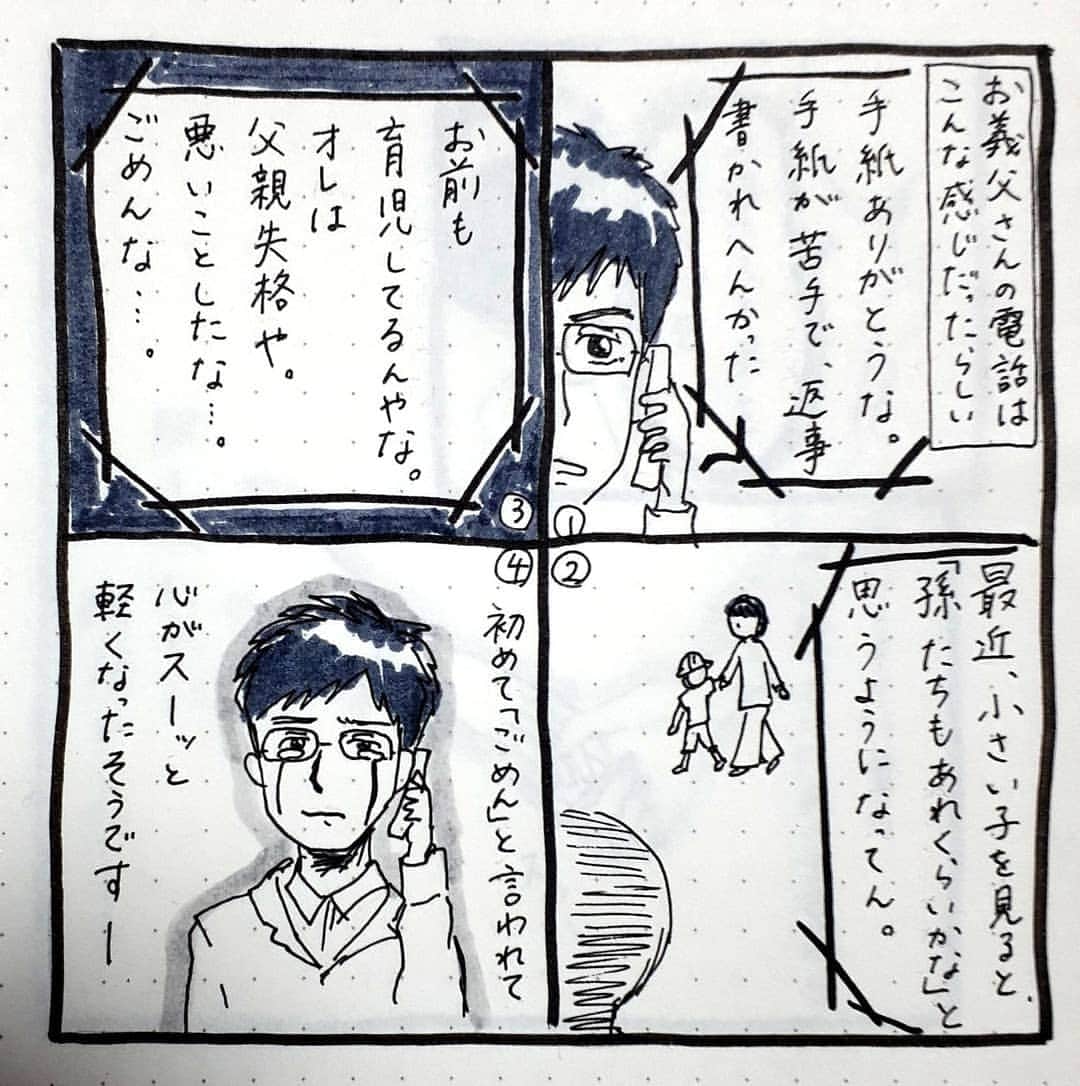 お義父さんの電話は
こんな感じだったらしい
手紙ありがとうな。
手紙が苦手で、返事
書かれへんかった
①
②
最近、小さい子を見ると、
「孫たちもあれくらいかな」と
思うようになってん。
お前も
育児してるんやな。
オレは
父親失格や。
悪いことしたな…。
ごめんな…。
③
④
初めて「ごめん」と言われて
心がスーッと
軽くなったそうですー